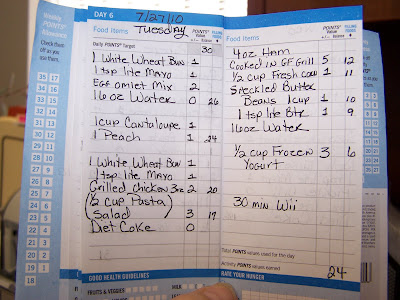 DAY 6
7/27/10
Tuesday
Food Items
POINTS® Value
+/-
FILLING FOODS
Daily POINTS® Target
30
1 White Wheat Bun 1
1 tsp lite Mayo 1
Egg omlet Mix 2
16 oz Water 0 26
1 cup Cantaloupe 1
1 Peach 1 24
1 White Wheat Bun 1
1 tsp lite Mayo 1
Grilled Chicken 3oz 2 20
(1/2 cup Pasta)
(Salad) 3 19
Diet Coke 0
GOOD HEALTH GUIDELINES
FRUITS & VEGGIES
Food Items
POINTS® Value
+/-
FILLING FOODS
4oz Ham
Cooked in GF Grill 5 12
1/2 cup Fresh corn 1 11
Speckled Butter
Beans 1 cup 1 10
1 tsp lite Btr 1 9
16oz Water
1/2 cup Frozen 3 6
Yogurt
30 min Wii
Total POINTS values used for the day
Activity POINTS values earned
24
RATE YOUR HUNGER
Weekly POINTS® Allowance
Check them off as you use them.
35
17
34
16
33
15
32
14
31
13
30
12
29
11
28
10
27
9
26
8
25
7
24
6
23
5
22
4
21
3
20
2
19
1
18